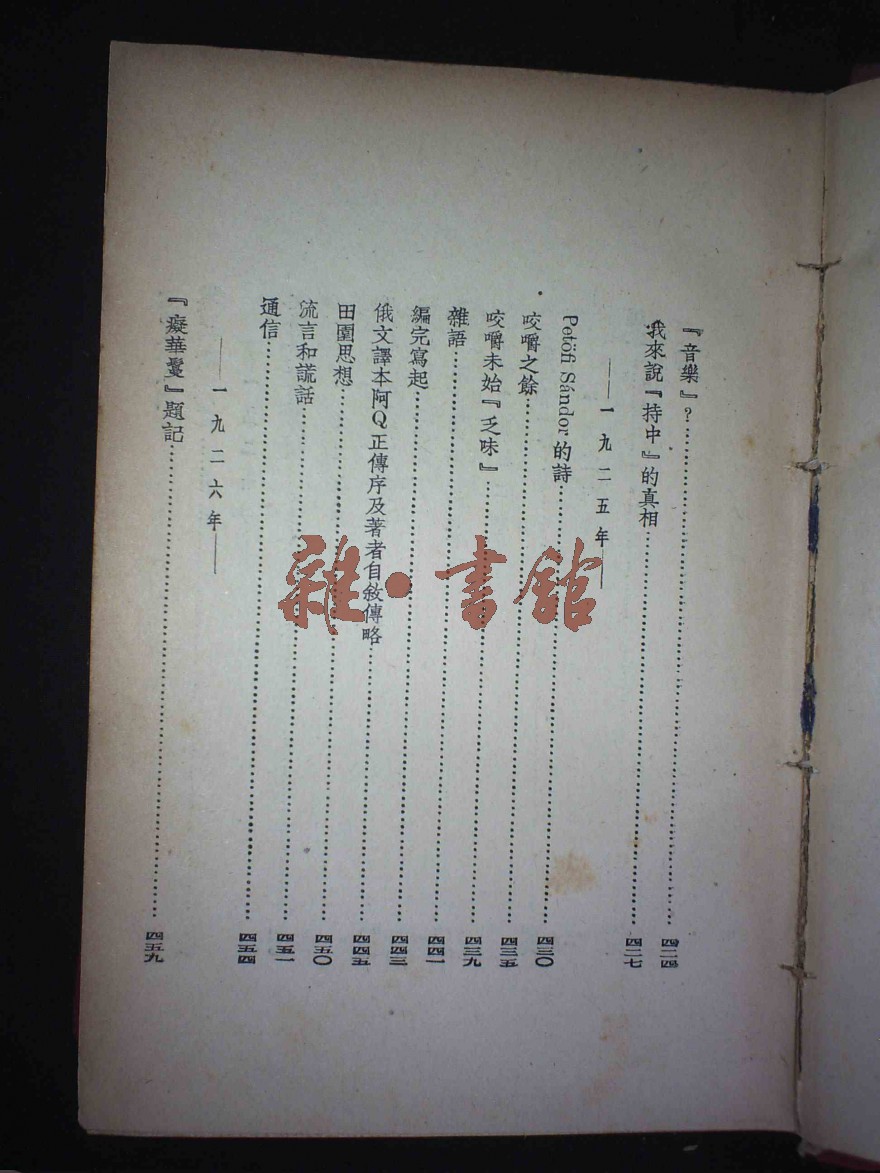 『音樂』？……四二四
我來說『持中』的真相……四二七
——一九二五年——
Petöfi Sándor 的詩……四三〇
咬嚼之餘……四三五
咬嚼未始『乏味』……四三九
雜語……四四一
編完寫起……四四三
俄文譯本阿Q正傳序及著者自敘傳略……四四五
田園思想……四五〇
流言和謊話……四五一
通信……四五四
——一九二六年——
『癡華鬘』題記……四五九
雜·書館